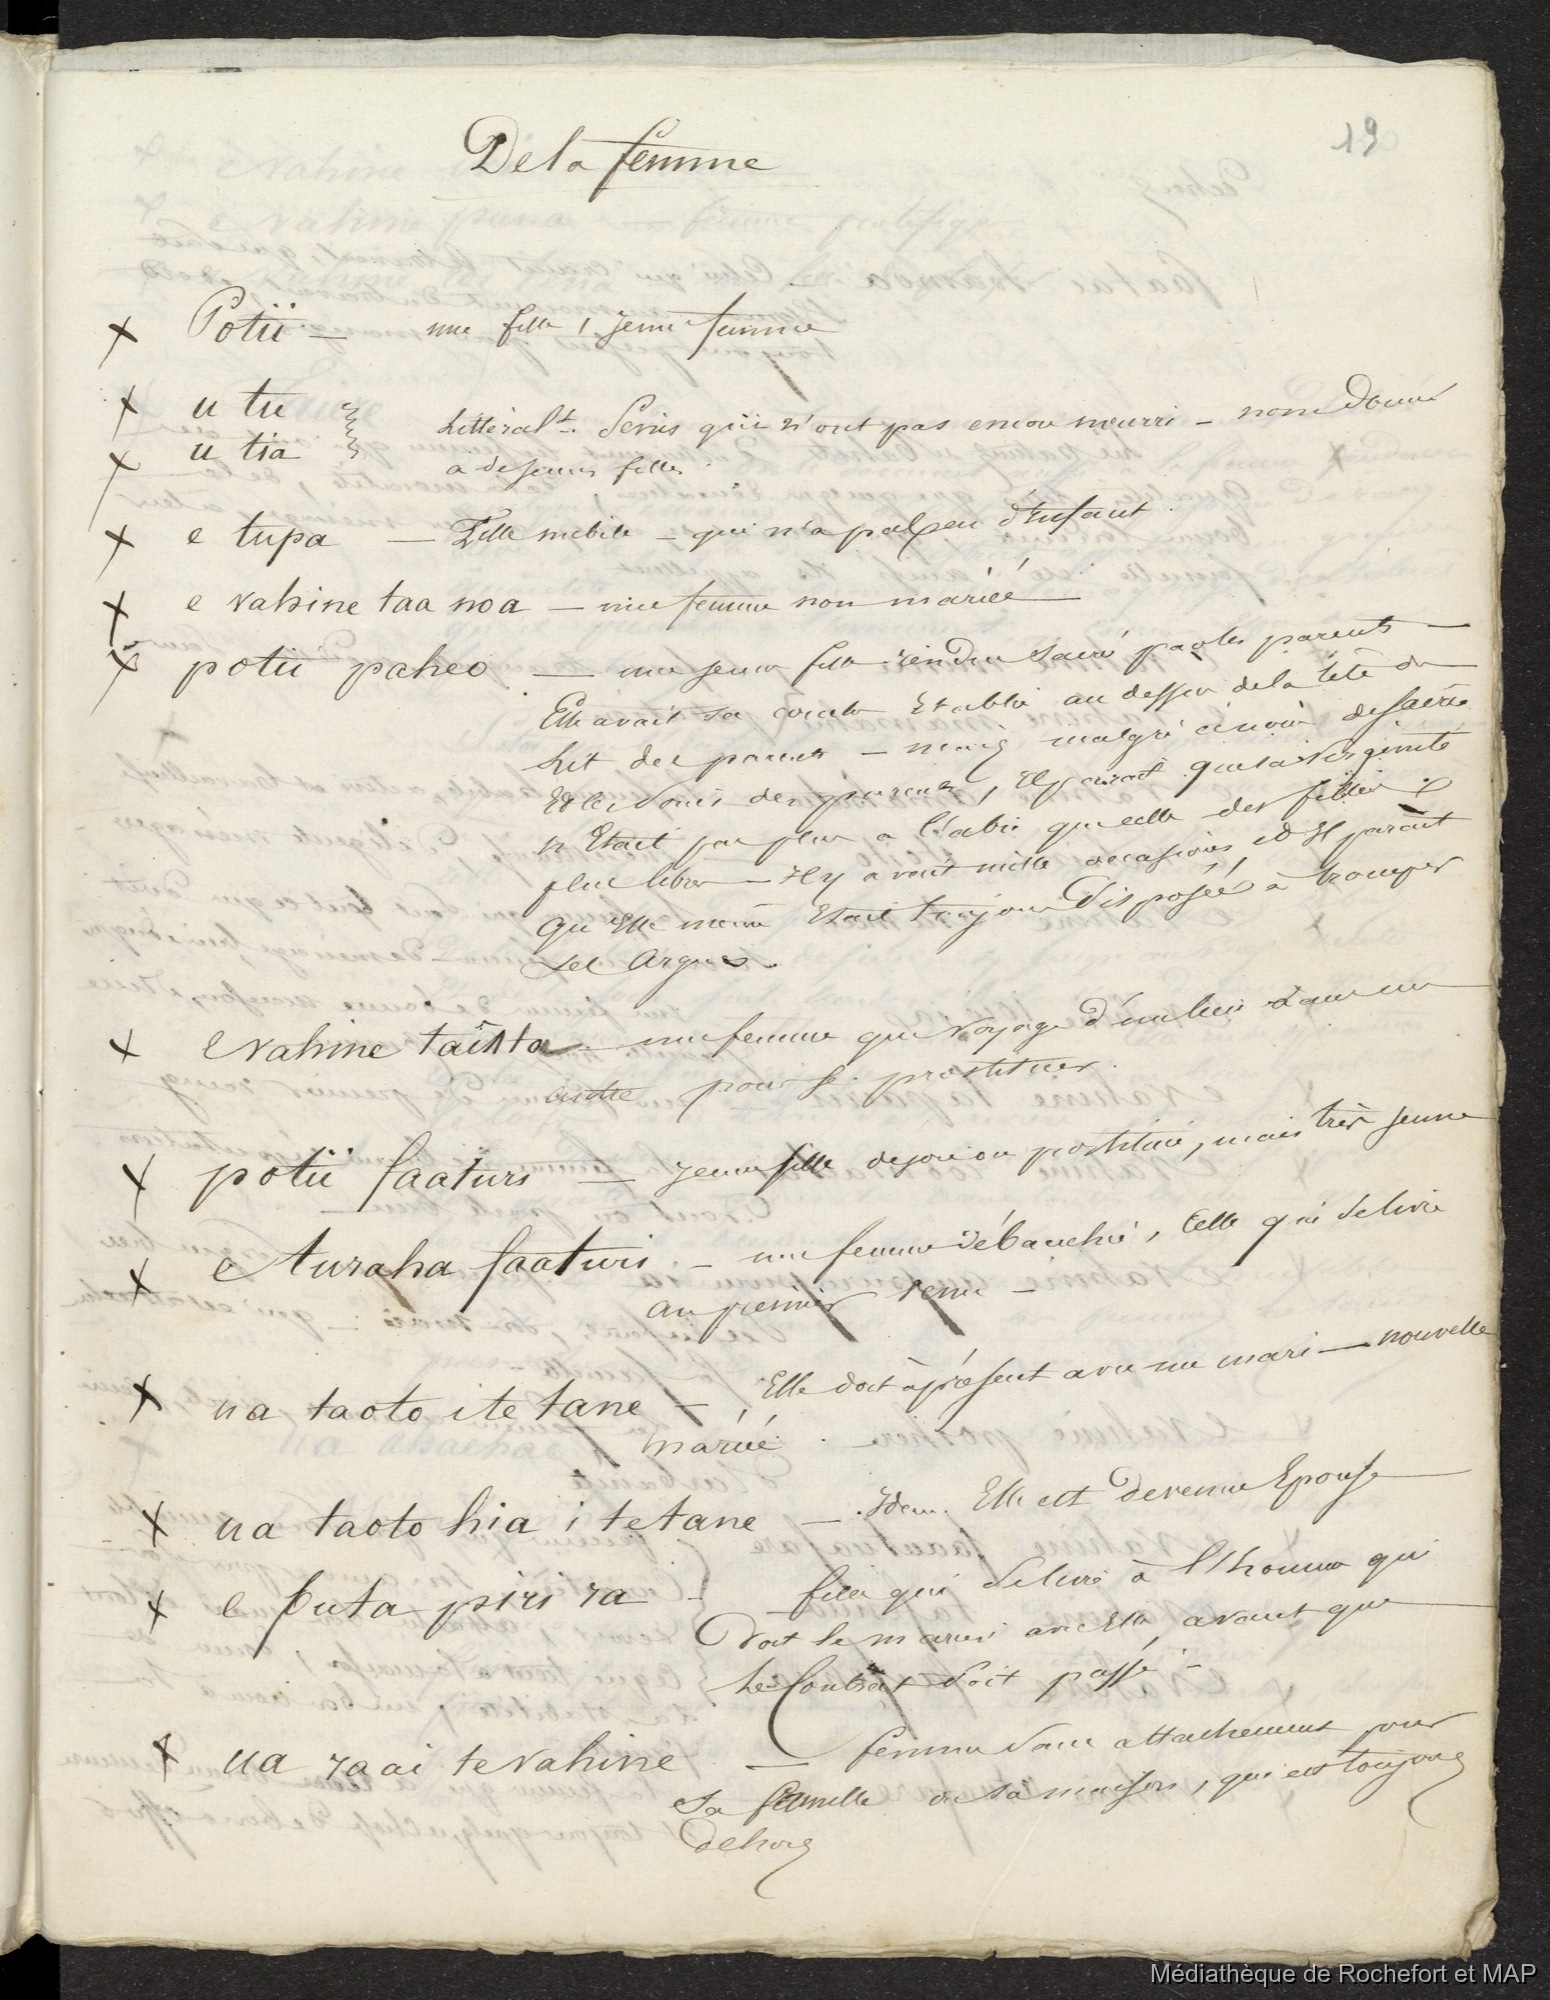 19
De la femme
x Potii — une fille, jeune femme
x u tu
x u tia
Littéralt. Seins qui n'ont pas encore nourri - nom donné
à de jeunes filles.
x e tupa — Fille nubile - qui n'a pas eu d'enfant
x e vahine taa noa — une femme non mariée —
x potii paheo — une jeune fille rendue sacrée par les parents —
Elle avait sa couche établie au dessus de la tête du
lit des parents — mais malgré
et les soins des parents, il parait que sa virginité
n'Etait pas plus à l'abri que celle des filles
plus libres — Il y avait mille occasions et Il parait
qu'Elle même Etait toujours disposée à tromper
ses Argus.
x e vahine — une femme qui voyage d'un lieu dans un
autre pour se prostituer.
x potii faaturi — jeune fille de joie ou prostituée, mais très jeune
x e turaha faaturi - une femme débauchée, celle qui se livre
au premier venu —
x ua taoto i te tane — Elle dort à présent avec un mari — nouvelle
mariée. —
x ua taoto hia i te tane — Idem. Elle est devenue Epouse
x e futa piri ra - fille qui se livre à l'homme qui
doit se marier avec Elle, avant que
le Contrat soit passé -
x ua raai te vahine — femme sans attachement pour
sa famille ou sa maison, qui est toujours
dehors
Médiathèque de Rochefort et MAP